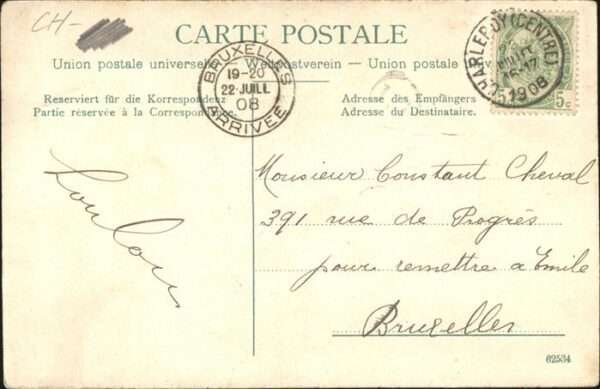 CH-
CARTE POSTALE
Union postale universelle — Weltpostverein — Union postale
Reserviert für die Korrespondenz
Partie réservée à la Correspondance
Adresse des Empfängers
Adresse du Destinataire.
BRUXELLES
19-20
22 JUILL
08
ARRIVÉE
CHARLEROY (CENTRE)
16-17
1908
5c
Loulou
Monsieur Constant Cheval
391 rue de Progrès
pour remettre a Emile
Bruxelles
62534